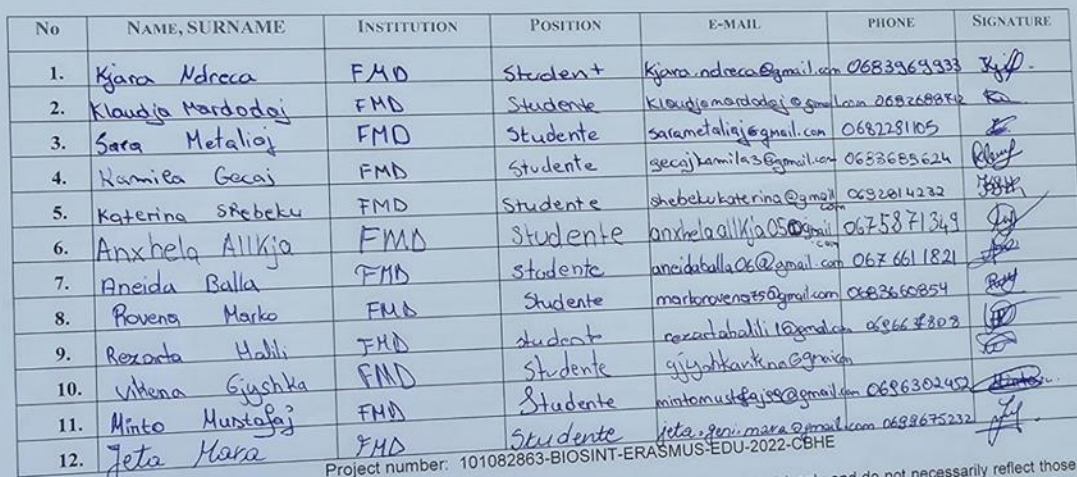 No NAME, SURNAME INSTITUTION POSITION E-MAIL PHONE SIGNATURE
1. Kjara Ndreca FMD Student kjara.ndreca@gmail.com 0683969933
2. Klaudja Mardodaj FMD Studente klaudjamardodaj@gmail.com
3. Sara Metaliaj FMD Studente sarametaliaj@gmail.com 0682281105
4. Kamila Gecaj FMD Studente gecajkamila3@gmail.com 0683685624
5. Katerina Shebeku FMD Studente shebekukaterina@gmail.com 0692814232
6. Anxhela Allkja FMD Studente anxhelaallkja05@gmail.com 0675871349
7. Aneida Balla FMD Studente aneidaballa06@gmail.com 0676611821
8. Rovena Marko FMD Studente markorovena75@gmail.com 0683660854
9. Rezarta FMD student
10. Vikena Gjyshka FMD Studente
11. Minto Mustafaj FMD Studente 0696302452
12. Jeta Mara FMD Studente jeta.geni.mara@gmail.com 0699675232
Project number: 101082863-BIOSINT-ERASMUS-EDU-2022-CBHE
and do not necessarily reflect those